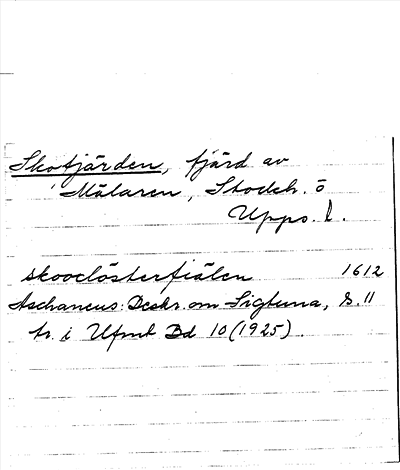 Skofjärden, fjärd av
Mälaren, Stockh. o
Upps. l.
skooclösterfiälen 1612
Aschaneus: Beskr. om Sigtuna, s. 11
tr. i Ufmt Bd 10 (1925).